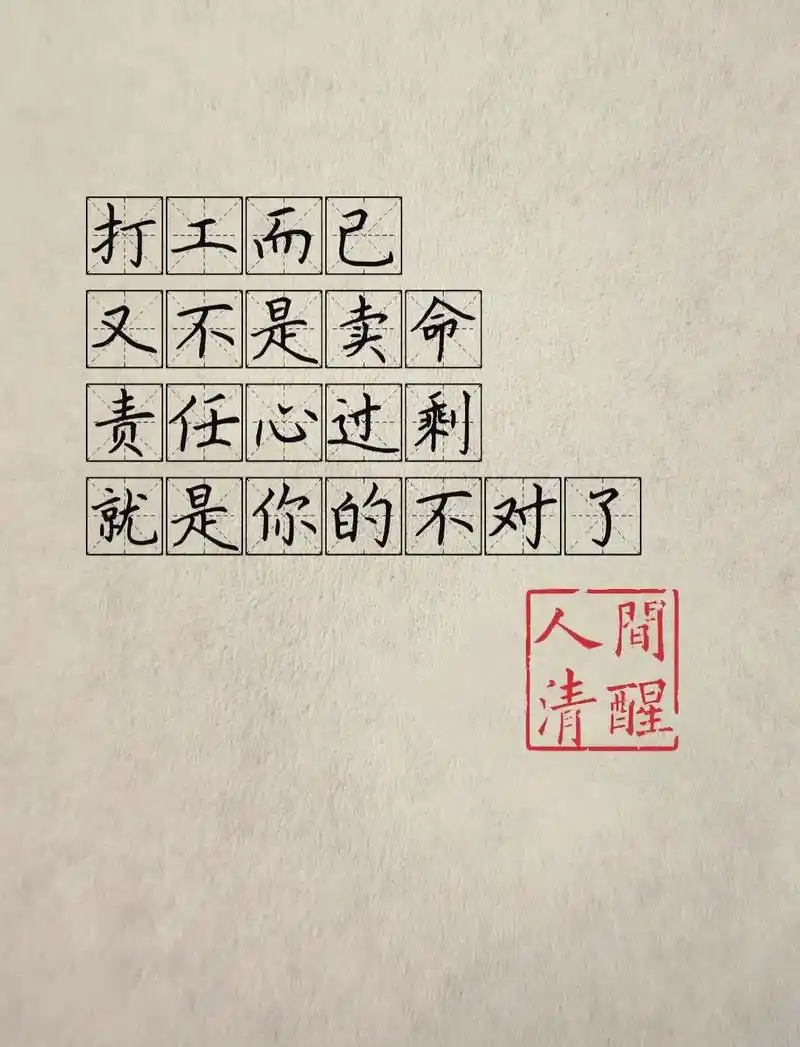 打工而已
又不是卖命
责任心过剩
就是你的不对了
人間
清醒